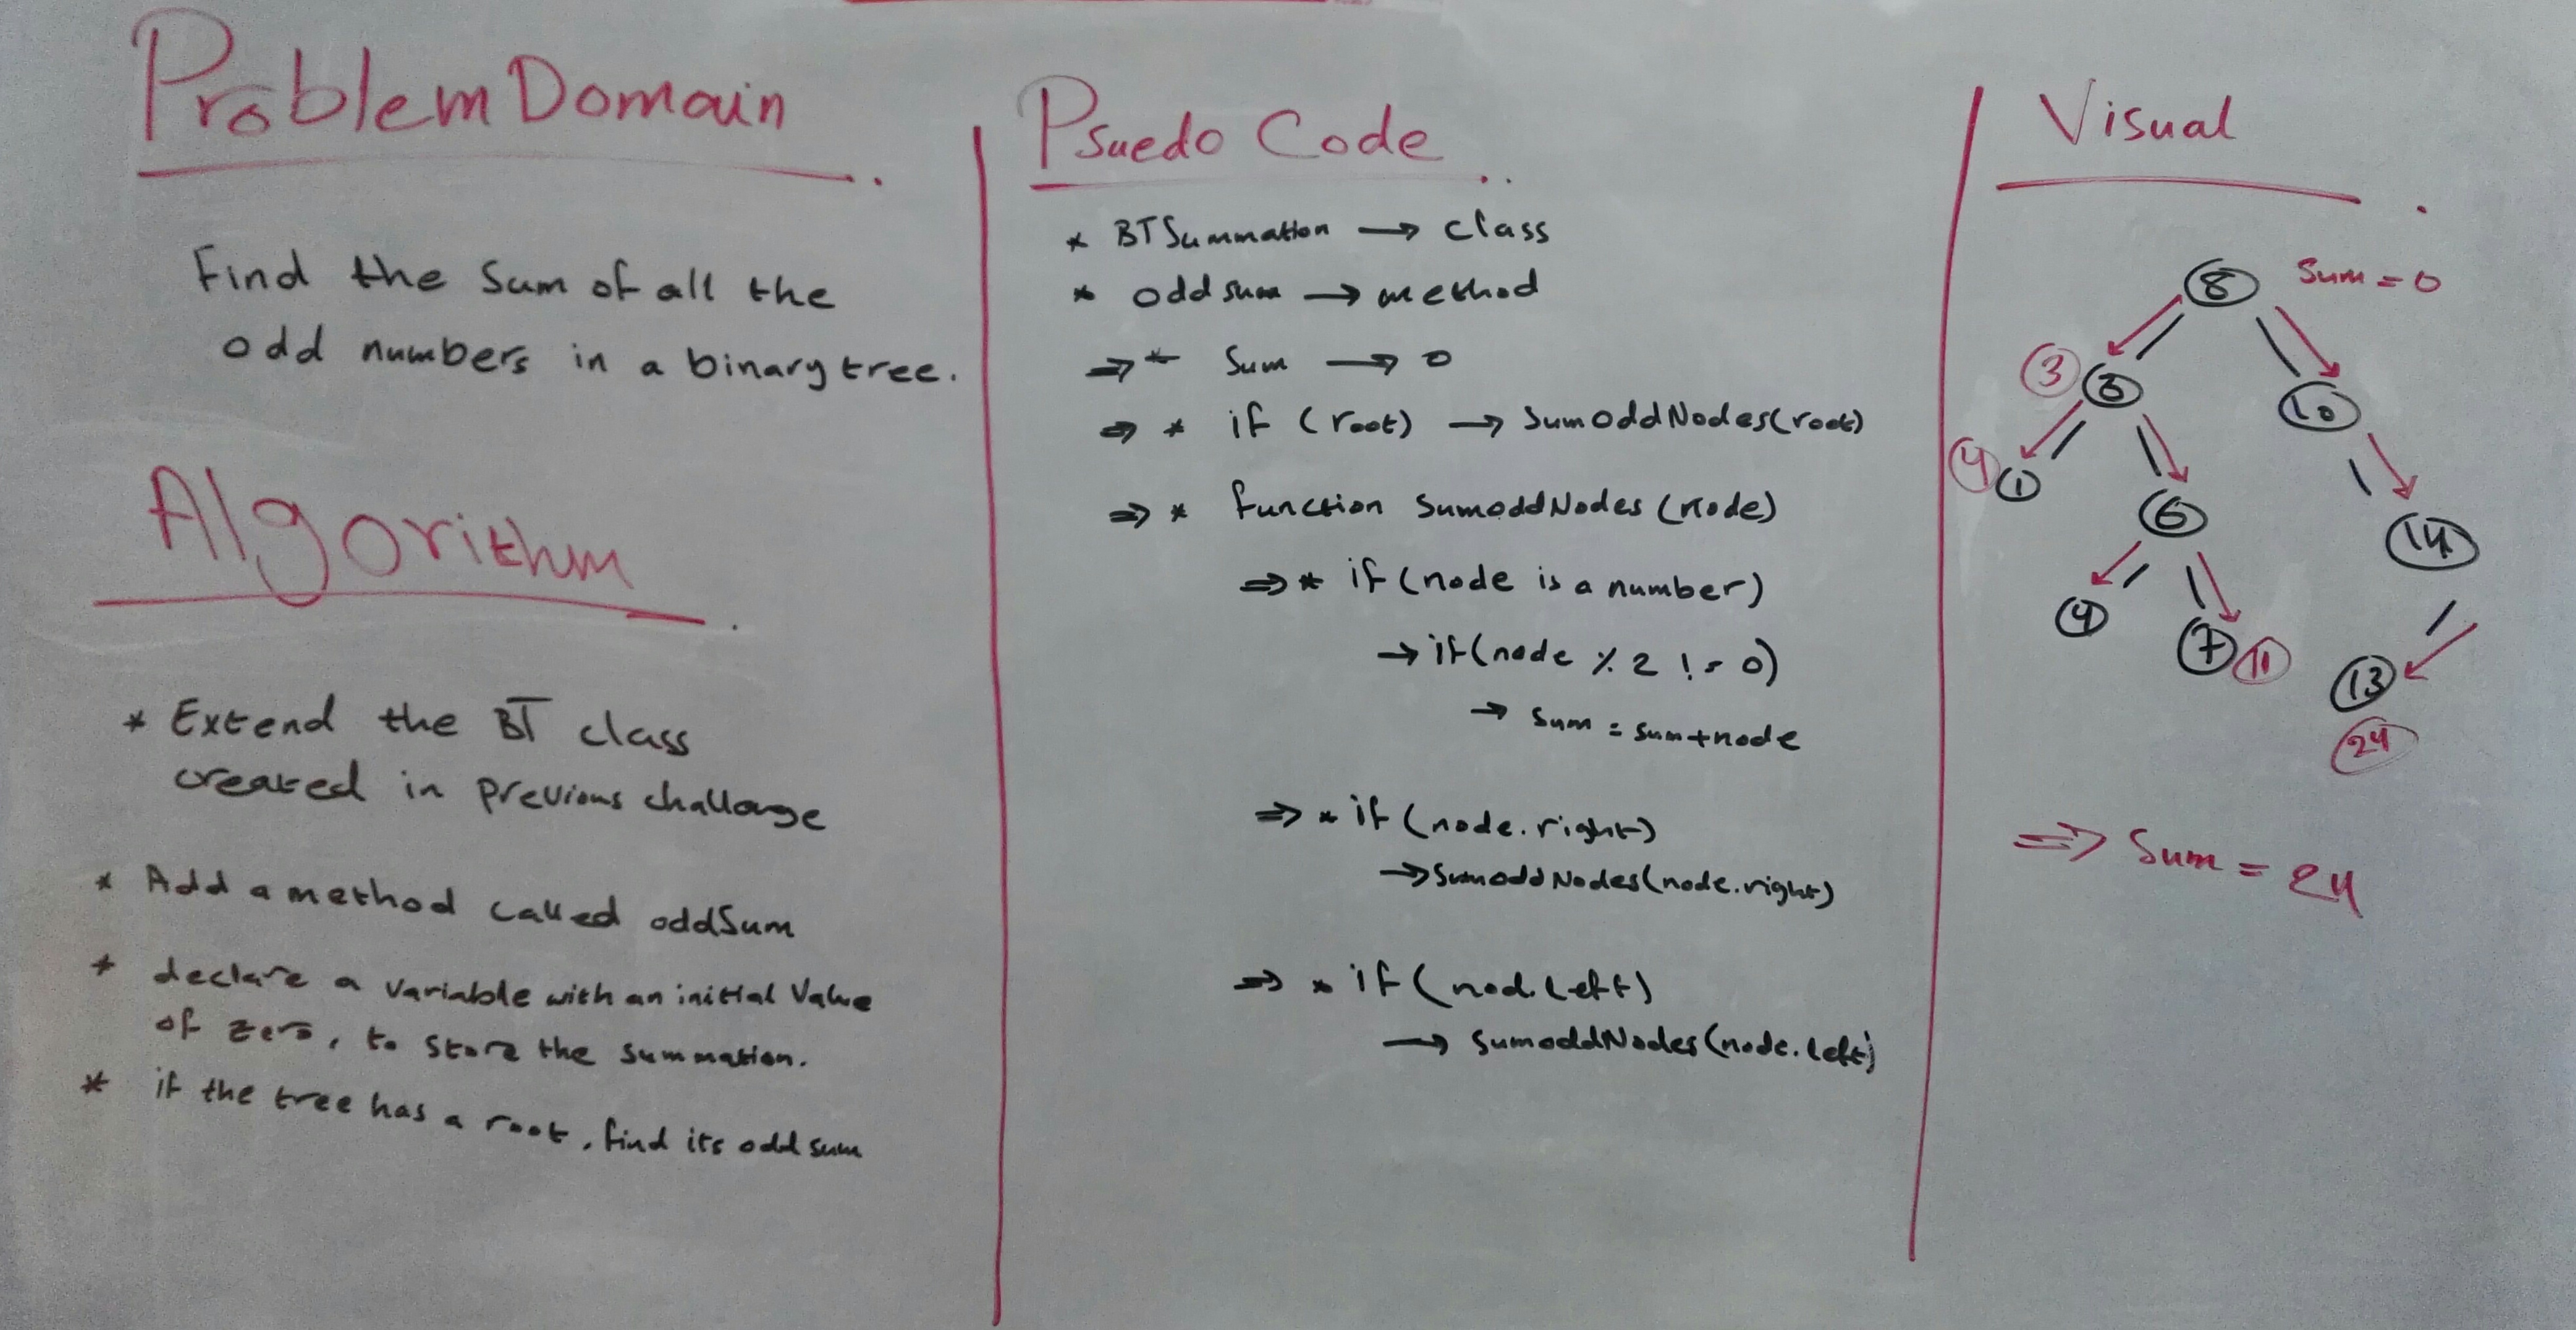 Problem Domain
Find the Sum of all the
odd numbers in a binary tree.
Algorithm
* Extend the BT class
created in previous challange
* Add a method called oddSum
* declare a variable with an initial value
of zero, to store the summation.
* if the tree has a root, find its odd sum
Psuedo Code
* BTSummation → class
* odd sum → method
⇒ * Sum → 0
⇒ * if (root) → SumOddNodes(root)
⇒ * function SumoddNodes (Node)
⇒ * if (node is a number)
→ if(node % 2 != 0)
→ sum = sum+node
⇒ * if (node.right)
→ SumoddNodes(node.right)
⇒ * if (nod.left)
→ SumoddNodes(node.left)
Visual
8 Sum = 0
3 3 10
4 1 6 14
4 7 11 13
24
⇒ Sum = 24